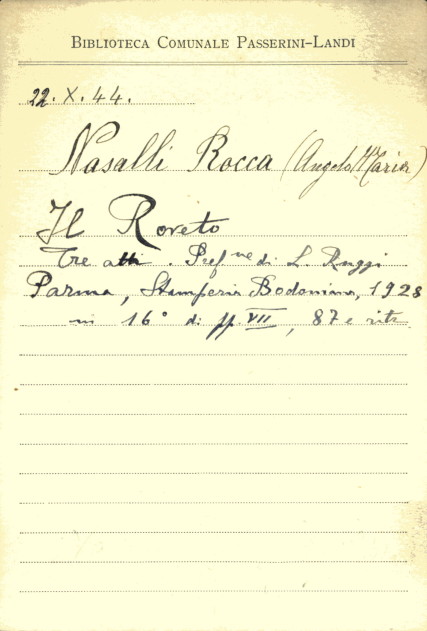 BIBLIOTECA COMUNALE PASSERINI-LANDI
22. X. 44.
Nasalli Rocca (Angelo Maria)
Il Roveto
Tre atti. Pref.ne di L. Ruggi
Parma, Stamperia Bodoniana, 1928
in 16° di pp. VII, 87 e ritr.